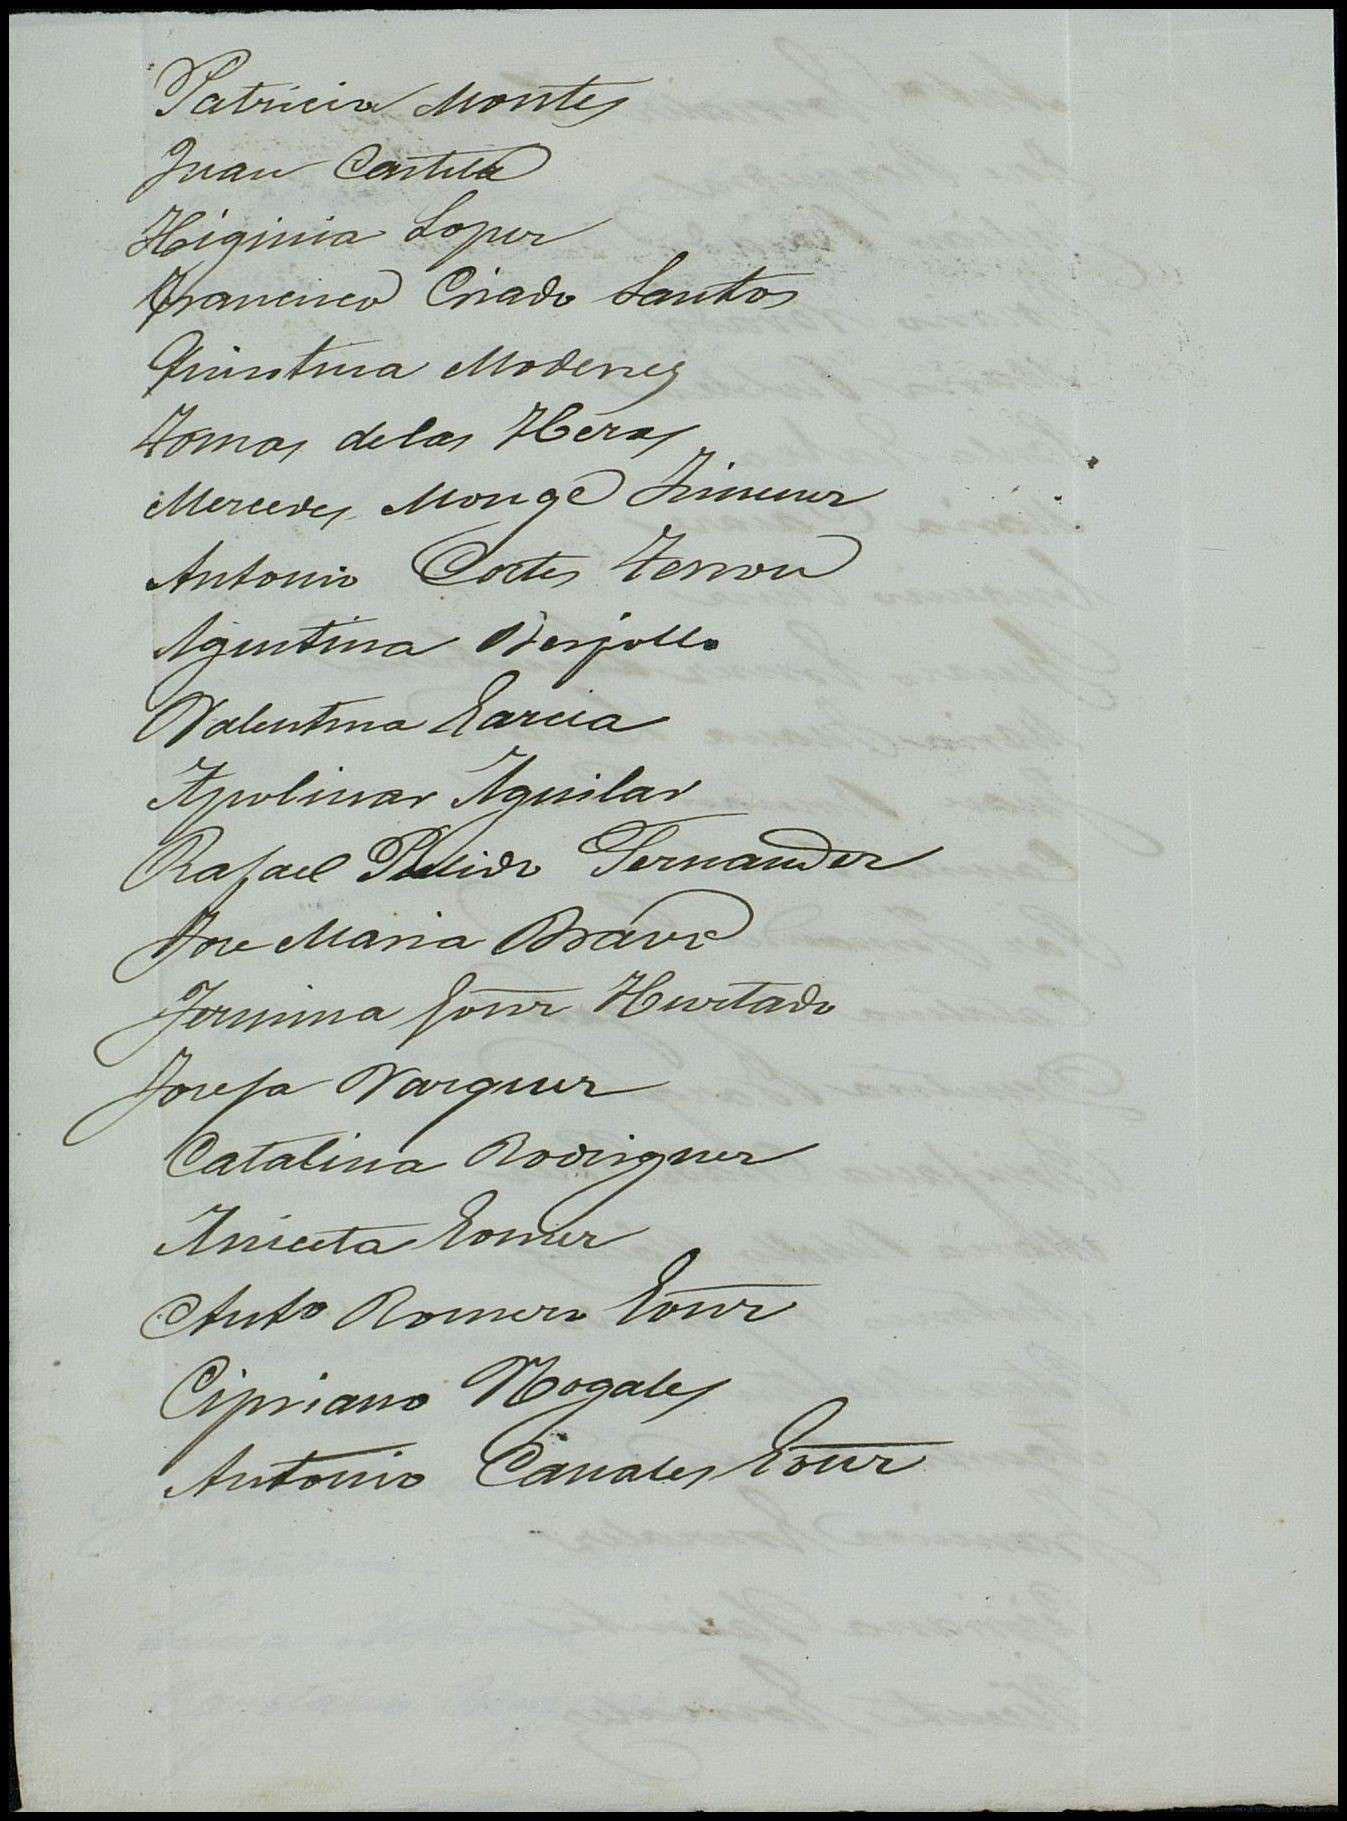 Patricia Montes
Juan Castilla
Higinia Lopez
Francisco Criado Santos
Quintina Modenes
Tomas de las Heras
Mercedes Monge Jimenez
Antonio Cortes Terron
Agustina
Valentina Garcia
Apolinar Aguilar
Rafael Pulido Fernandez
Jose Maria Bravo
Gomz Hurtado
Josefa Vazquez
Catalina Rodriguez
Aniceta Gomez
Anto Romero Gomz
Cipriano Nogales
Antonio Canales Gomz